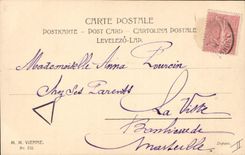 CARTE POSTALE
POSTKARTE - POST CARD - CARTOLINA POSTALE
LEVELEZŐ-LAP.
Mademoiselle Anna Pourcin
chez ses Parents
La Viste
Banlieue de
Marseille
M. M. VIENNE.
Nr.